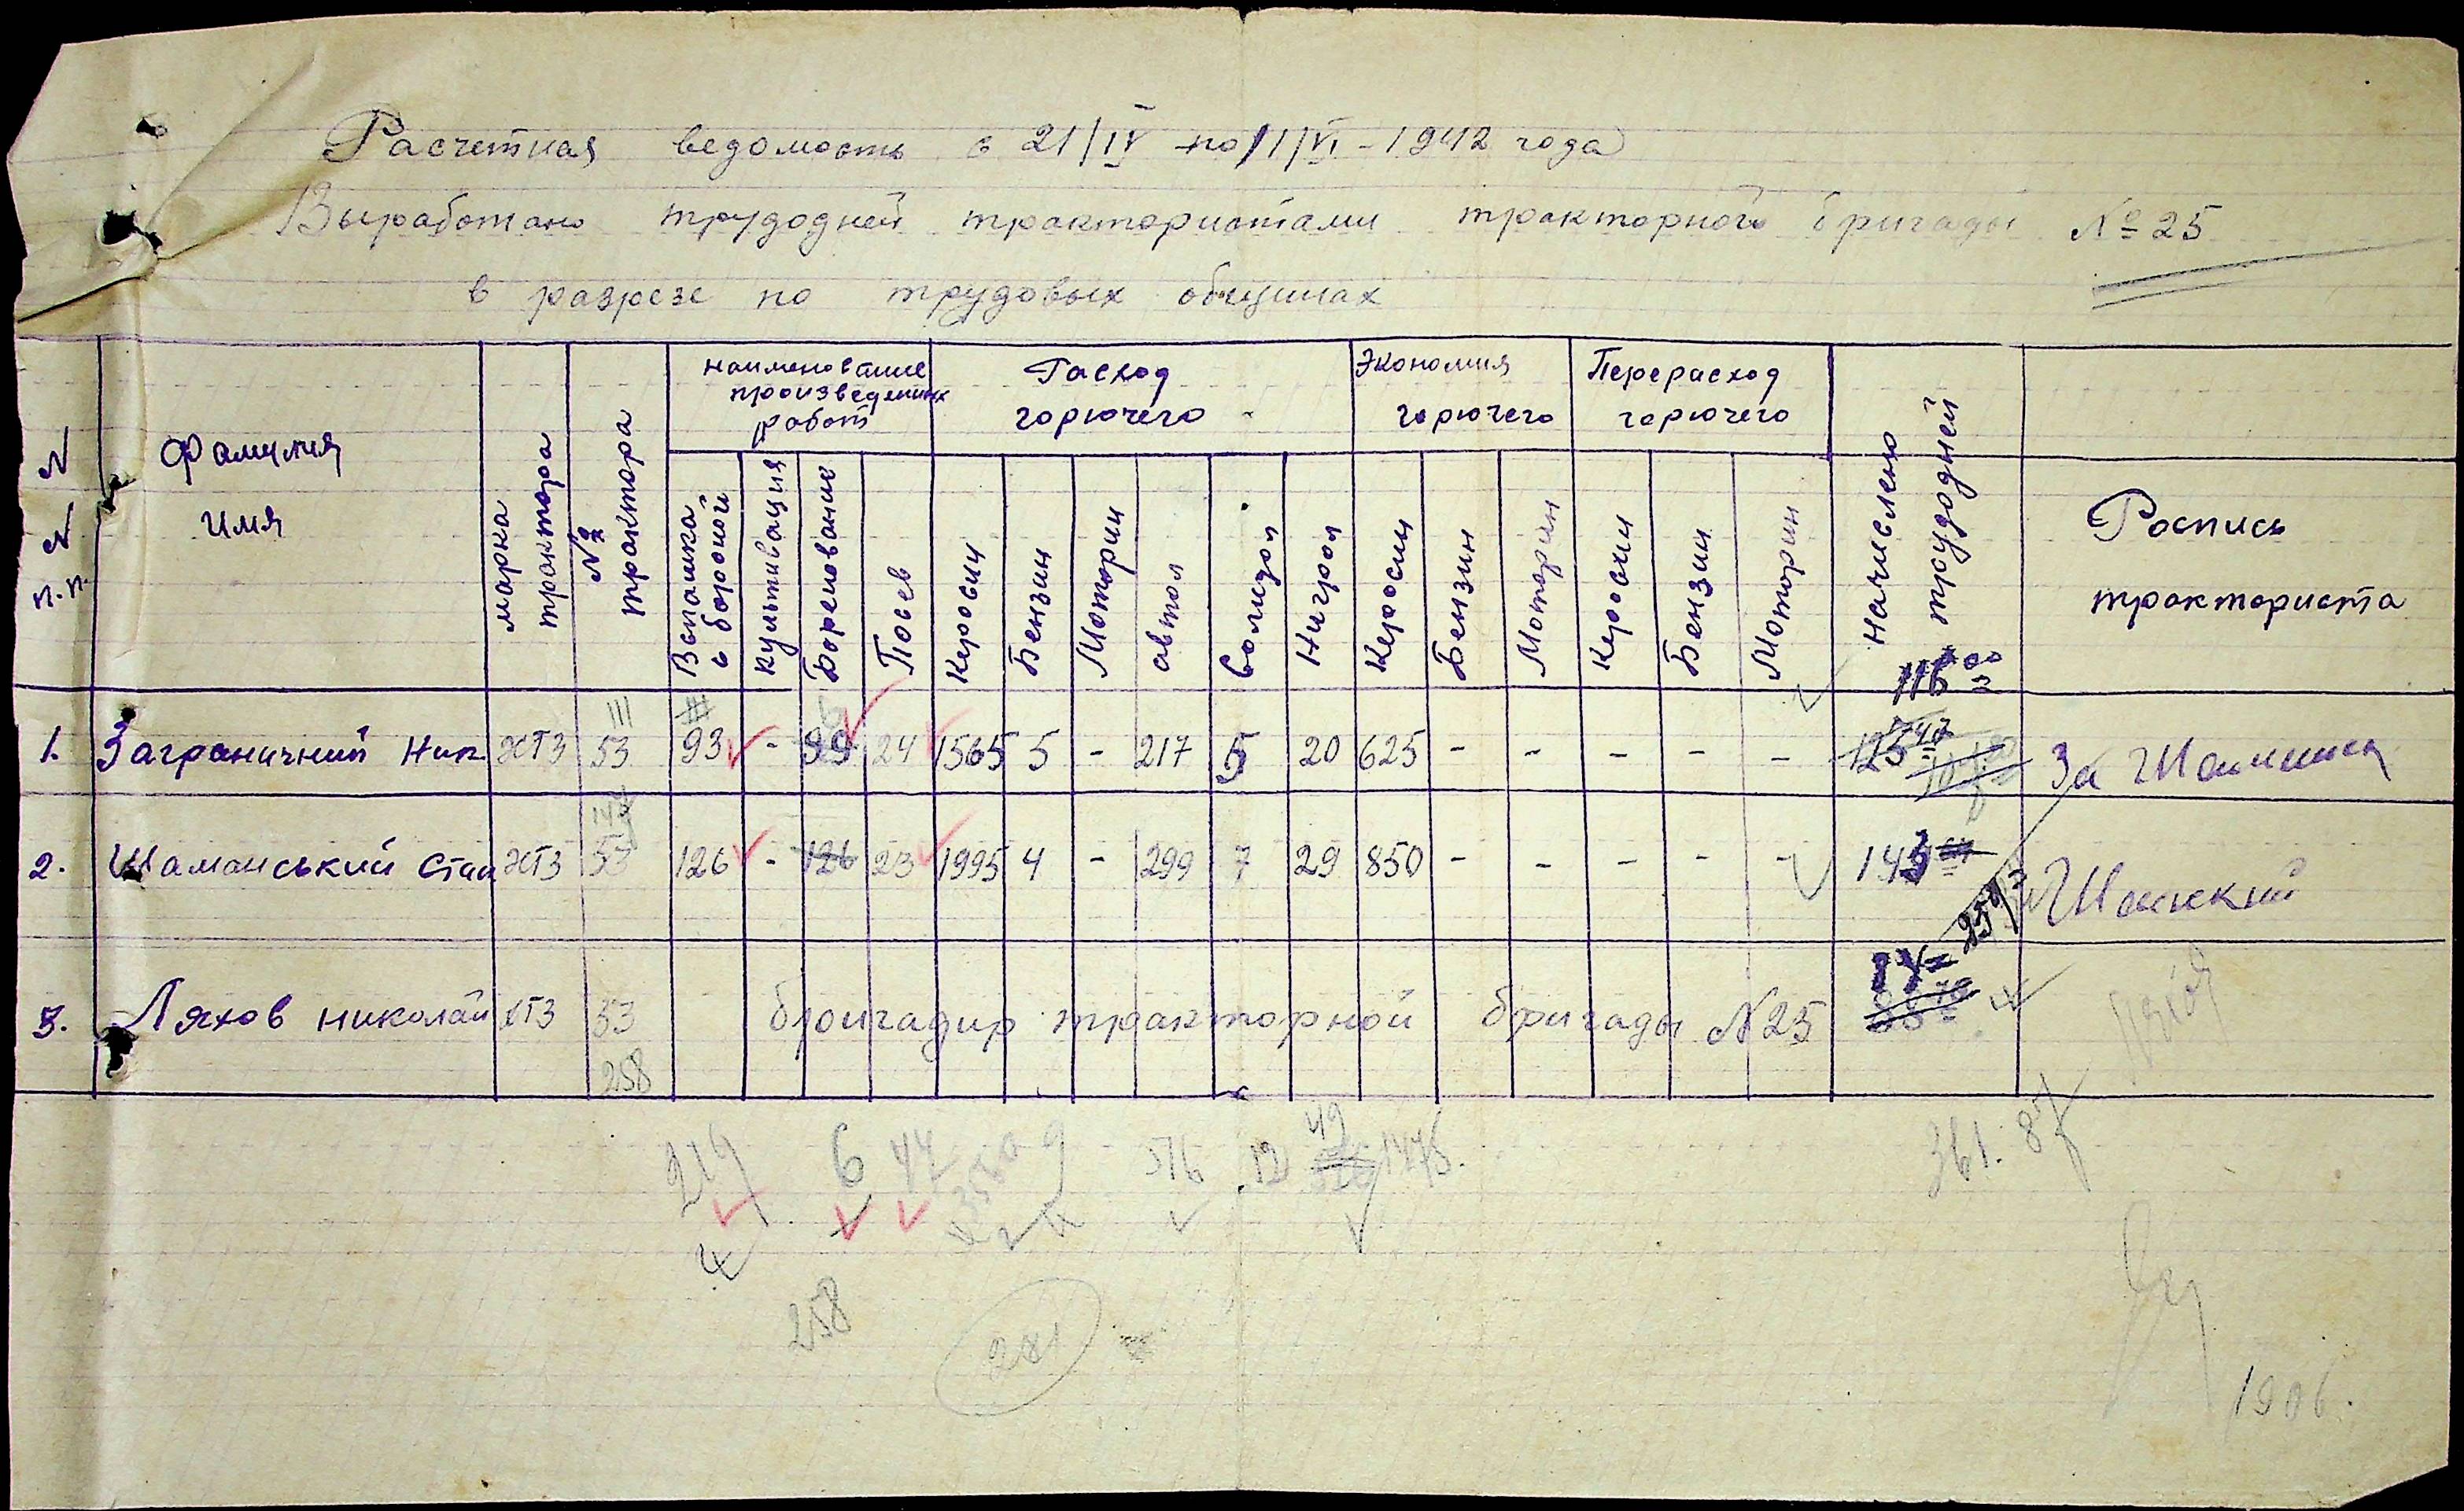 Расчетная ведомость с 21/IV по 1/VI - 1942 года
Выработано трудодней трактористами тракторного бригады № 25
в разрезе по трудовых общинах
N N п.п.
Фамилия имя
марка трактора
№ трактора
наименование произведенных работ
Расход горючего
Экономия горючего
Перерасход горючего
начислено трудодней
Роспись тракториста
Вспашка с бороной
культивация
Боронование
Посев
Керосин
Бензин
Моторин
автол
Солидол
Нигрол
Керосин
Бензин
Моторин
Керосин
Бензин
Моторин
116 00
111
1. Заграничний Ник. ХТЗ 53 93 - 24 1565 5 - 217 5 20 625 - - - - - 125 За
147
2. Шаманський Стан ХТЗ 53 126 - 126 23 1995 4 - 299 7 29 850 - - - - - 143
3. Ляхов николай ХТЗ 53 бригадир тракторной бригады N 25
258
49
219 6 47 3560 9 516 12 1475.
361.87
258
281
1906.